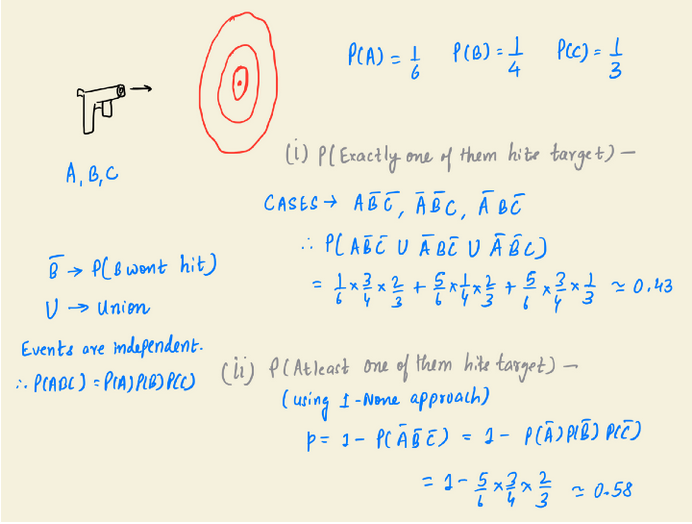 P(A) = 1/6 P(B) = 1/4 P(C) = 1/3
A, B, C
(i) P(Exactly one of them hits target) —
CASES → AB̅C̅, A̅B̅C, A̅BC̅
∴ P(AB̅C̅ U A̅BC̅ U A̅B̅C)
= 1/6 × 3/4 × 2/3 + 5/6 × 1/4 × 2/3 + 5/6 × 3/4 × 1/3 ≃ 0.43
B̅ → P(B wont hit)
U → Union
Events are independent.
∴ P(ABC) = P(A)P(B)P(C)
(ii) P(Atleast one of them hits target) —
(using 1-None approach)
p = 1 - P(A̅B̅C̅) = 1 - P(A̅)P(B̅)P(C̅)
= 1 - 5/6 × 3/4 × 2/3 ≃ 0.58